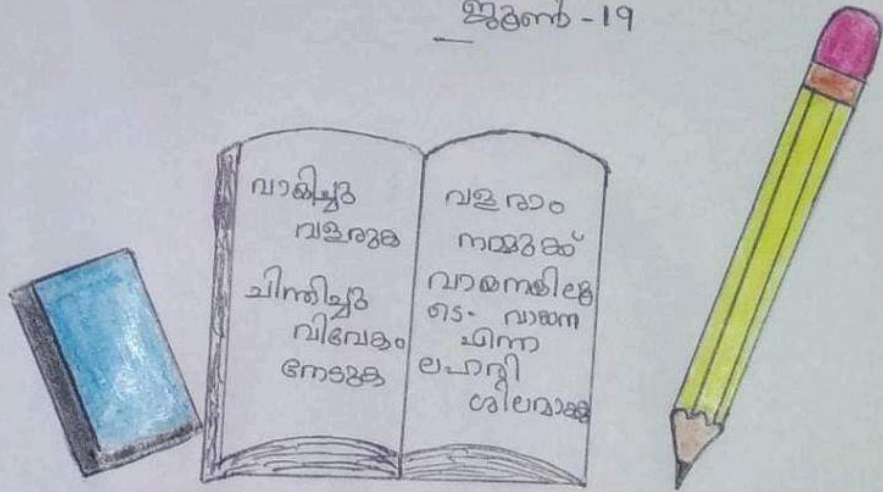 ജൂൺ - 19
വായിച്ചു
വളരുക
ചിന്തിച്ചു
വിവേകം
നേടുക
വളരാം
നമ്മുക്ക്
വായനയിലൂ
ടെ. വായന
എന്ന
ലഹരി
ശീലമാക്കൂ